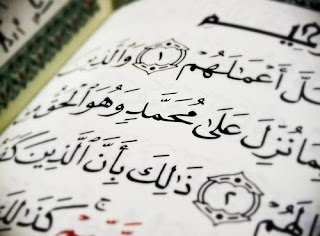 ـحِيمِ
ـلَّ أَعْمَٰلَهُمْ ١ وَٱلَّذِينَ
بِمَا نُزِّلَ عَلَىٰ مُحَمَّدٍ وَهُوَ ٱلْحَقُّ
ـالَهُمْ ٢ ذَٰلِكَ بِأَنَّ ٱلَّذِينَ
كَذَٰلِكَ